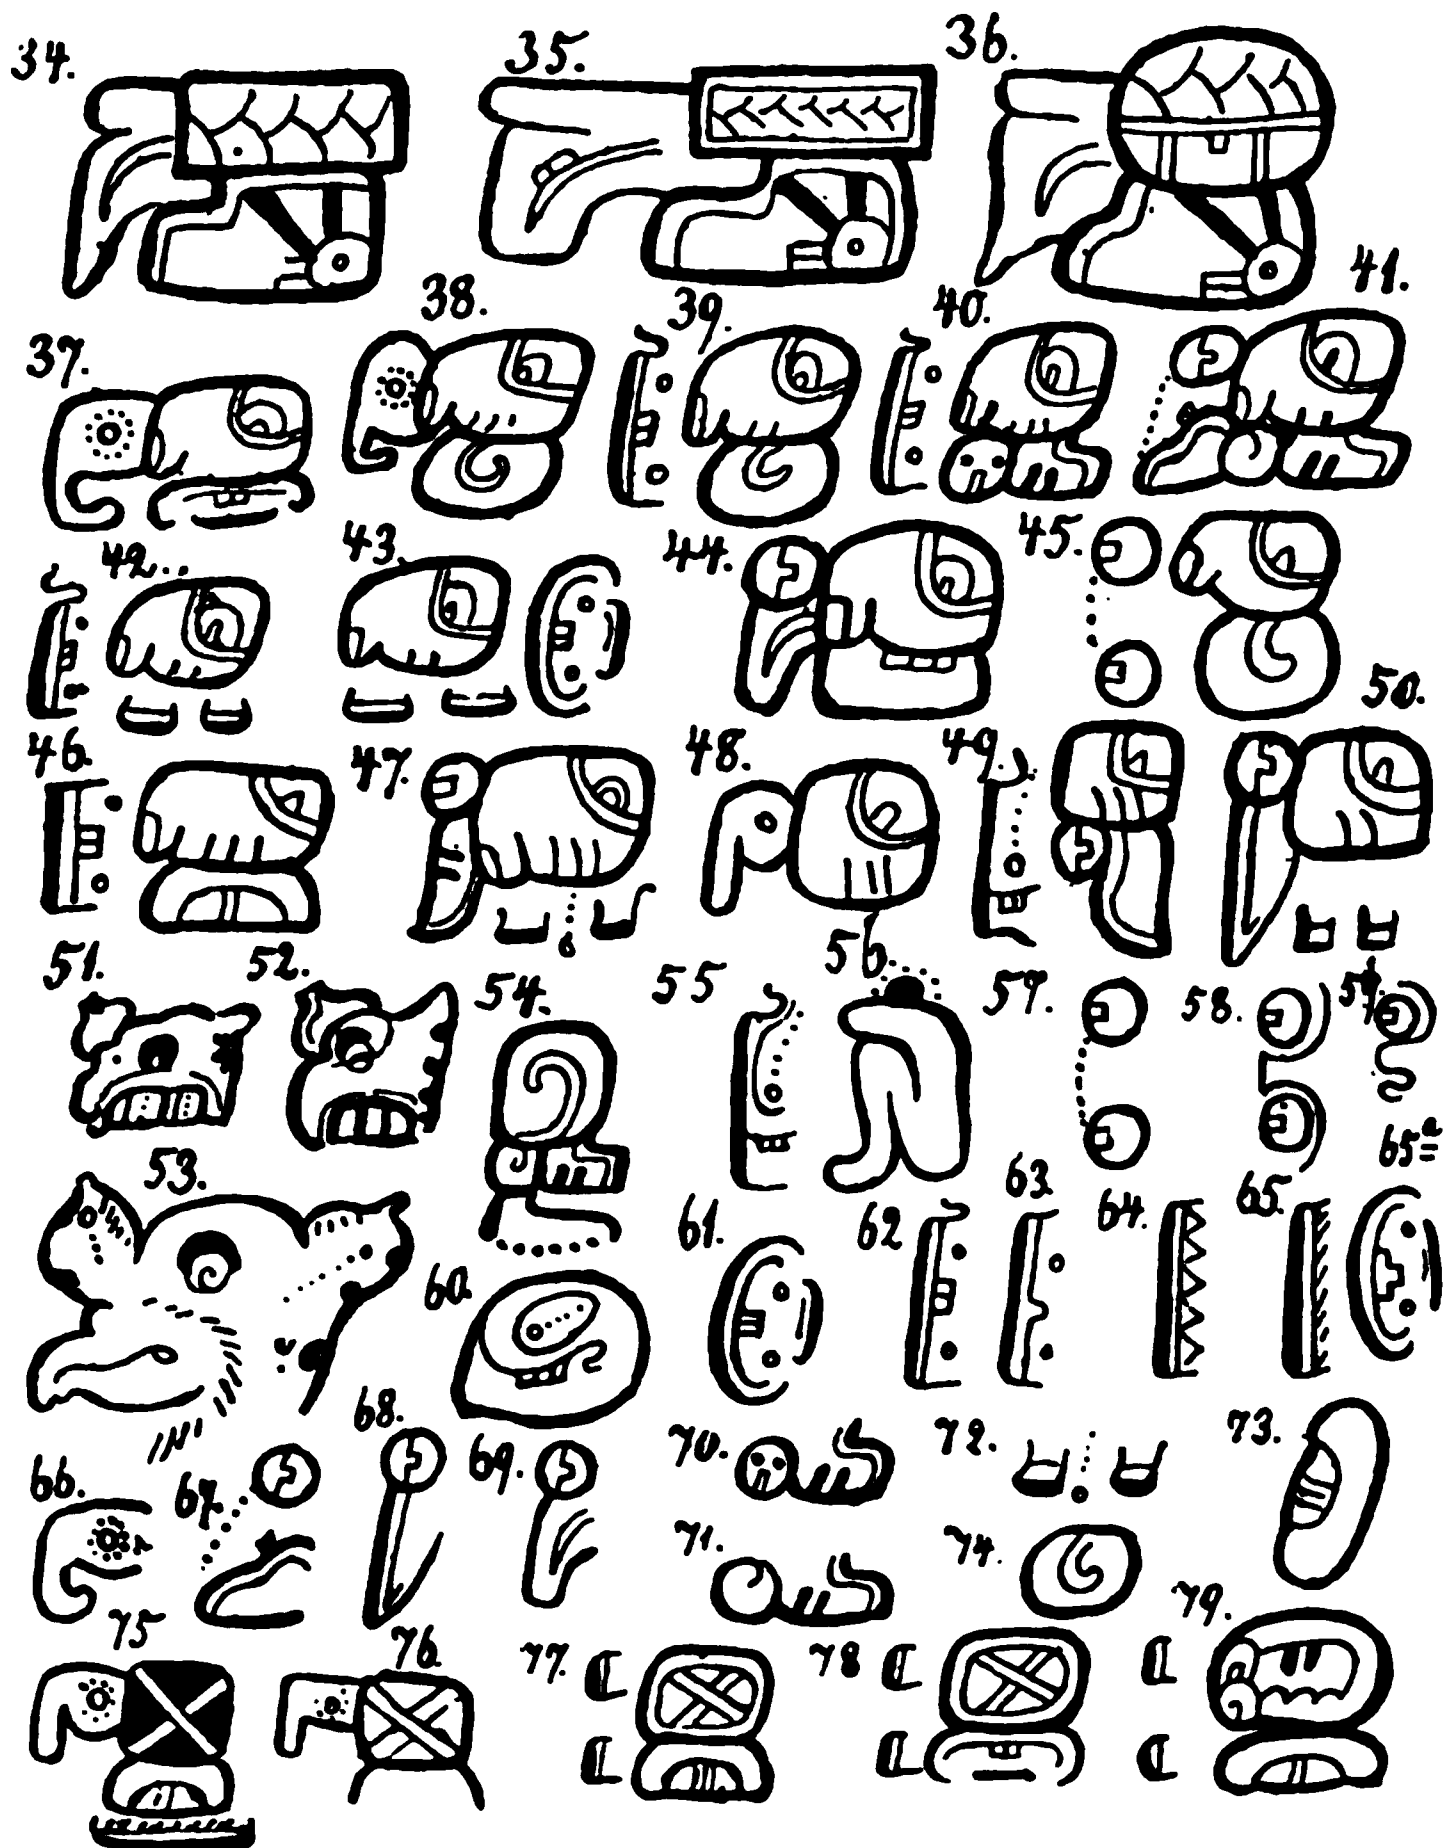 34. 35. 36.
37. 38. 39. 40. 41.
42.. 43. 44. 45.
46. 47. 48. 49. 50.
51. 52. 54. 55 56. 57. 58. 59.
53. 60. 61. 62 63. 64. 65. 65a
66. 67. 68. 69. 70. 72. 73.
71. 74.
75 76. 77. 78 79.